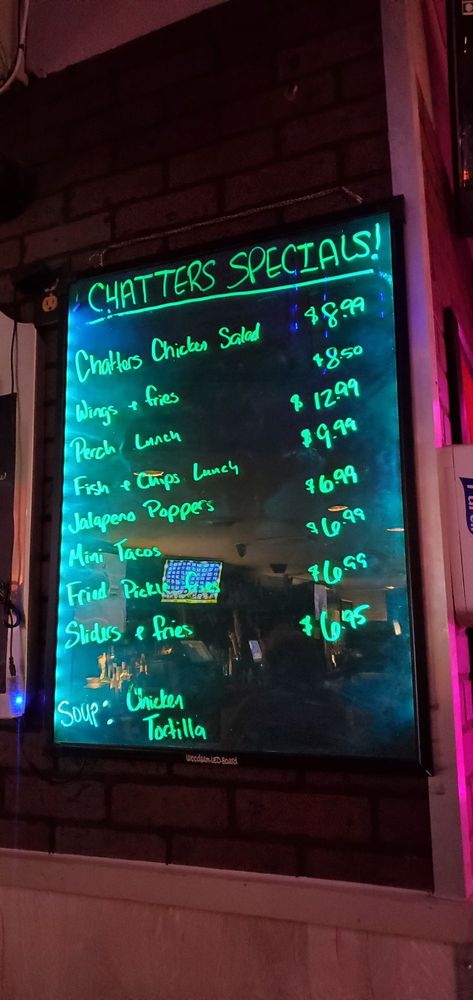 CHATTERS SPECIALS!
Chatters Chicken Salad $8.99
Wings & fries $8.50
Perch Lunch $12.99
Fish & Chips Lunch $9.99
Jalapeno Poppers $6.99
Mini Tacos $6.99
Fried Pickle fries $6.99
Sliders & fries $6.95
SOUP: Chicken
Tortilla
Woodsam LED Board